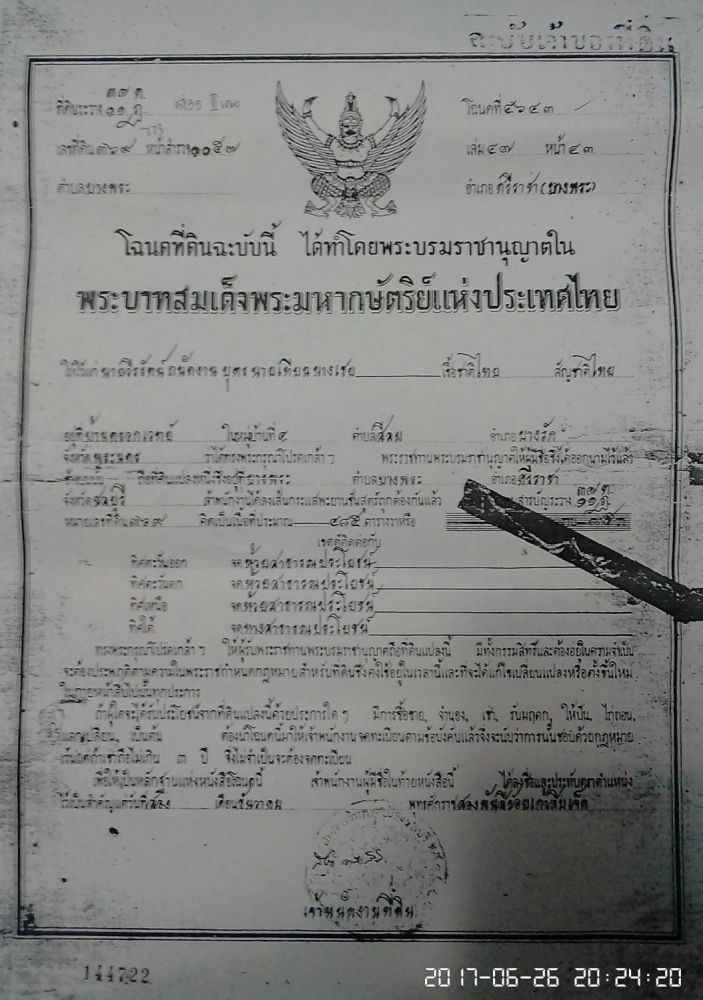 ฉะบับเจ้าของที่ดิน
๓๗ ต.
ที่ดินระวาง ๑๑ ฎ. โฉนดที่ ๕๖๔๓
เลขที่ดิน หน้าสำรวจ ๑๐๕๗ เล่ม ๔๗ หน้า ๔๓
ตำบล บางพระ อำเภอ ศรีราชา (บางพระ)
โฉนดที่ดินฉะบับนี้ ได้ทำโดยพระบรมราชานุญาตใน
พระบาทสมเด็จพระมหากษัตริย์แห่งประเทศไทย
ให้ไว้แก่ บุตร นายเทียน นางเชย เชื้อชาติ ไทย สัญชาติ ไทย
อยู่ที่บ้าน ในหมู่บ้านที่ ๔ ตำบล สีลม อำเภอ บางรัก
จังหวัด พระนคร ว่าได้ทรงพระกรุณาโปรดเกล้า ฯ พระราชทานพระบรมราชานุญาตให้ผู้มีชื่อซึ่งได้ออกนามไว้แล้ว
ถือที่ดินแปลงหนึ่งซึ่งอยู่ที่ บางพระ ตำบล บางพระ อำเภอ ศรีราชา
จังหวัด ชลบุรี เจ้าพนักงานได้ลงเส้นกระแสพะยานชันสูตร์ถูกต้องกันแล้ว สารบัญระวาง ๓๗ ต. ๑๑ ฎ.
หมายเลขที่ดิน คิดเป็นเนื้อที่ประมาณ ๔๘๕ ตารางวาหรือ
เขตต์ติดต่อกับ
ทิศตะวันออก จด ห้วยสาธารณประโยชน์
ทิศตะวันตก จด ห้วยสาธารณประโยชน์
ทิศเหนือ จด ห้วยสาธารณประโยชน์
ทิศใต้ จด ทางสาธารณประโยชน์
ทรงพระกรุณาโปรดเกล้า ฯ ให้ผู้รับพระราชทานพระบรมราชานุญาตถือที่ดินแปลงนี้ มีทั้งกรรมสิทธิ์และต้องอยู่ในความจำเป็น
จะต้องประพฤติตามความในพระราชกำหนดกฎหมายสำหรับที่ดินซึ่งคงใช้อยู่ในเวลานี้และที่จะได้แก้ไขเปลี่ยนแปลงหรือตั้งขึ้นใหม่
ในภายหน้าสืบไปนั้นทุกประการ
ถ้าผู้ใดจะได้รับประโยชน์จากที่ดินแปลงนี้ด้วยประการใด ๆ มีการซื้อขาย, จำนอง, เช่า, รับมฤดก, ให้ปัน, ไถ่ถอน,
แลกเปลี่ยน, เป็นต้น ต้องนำโฉนดนี้มาให้เจ้าพนักงานจดทะเบียนตามข้อบังคับแล้วจึ่งจะนับว่าการนั้นชอบด้วยกฎหมาย
เว้นแต่ถ้าเช่าถือไม่เกิน ๓ ปี จึงไม่จำเป็นจะต้องจดทะเบียน
เพื่อให้เป็นหลักฐานแห่งหนังสือโฉนดนี้ เจ้าพนักงานผู้มีชื่อในท้ายหนังสือนี้ ได้ลงชื่อและประทับตราตำแหน่ง
ไว้เป็นสำคัญแต่วันที่ สอง เดือน ธันวาคม พุทธศักราช สองพันสี่ร้อยเก้าสิบเจ็ด
เจ้าพนักงานที่ดิน
144722
2017-06-26 20:24:20